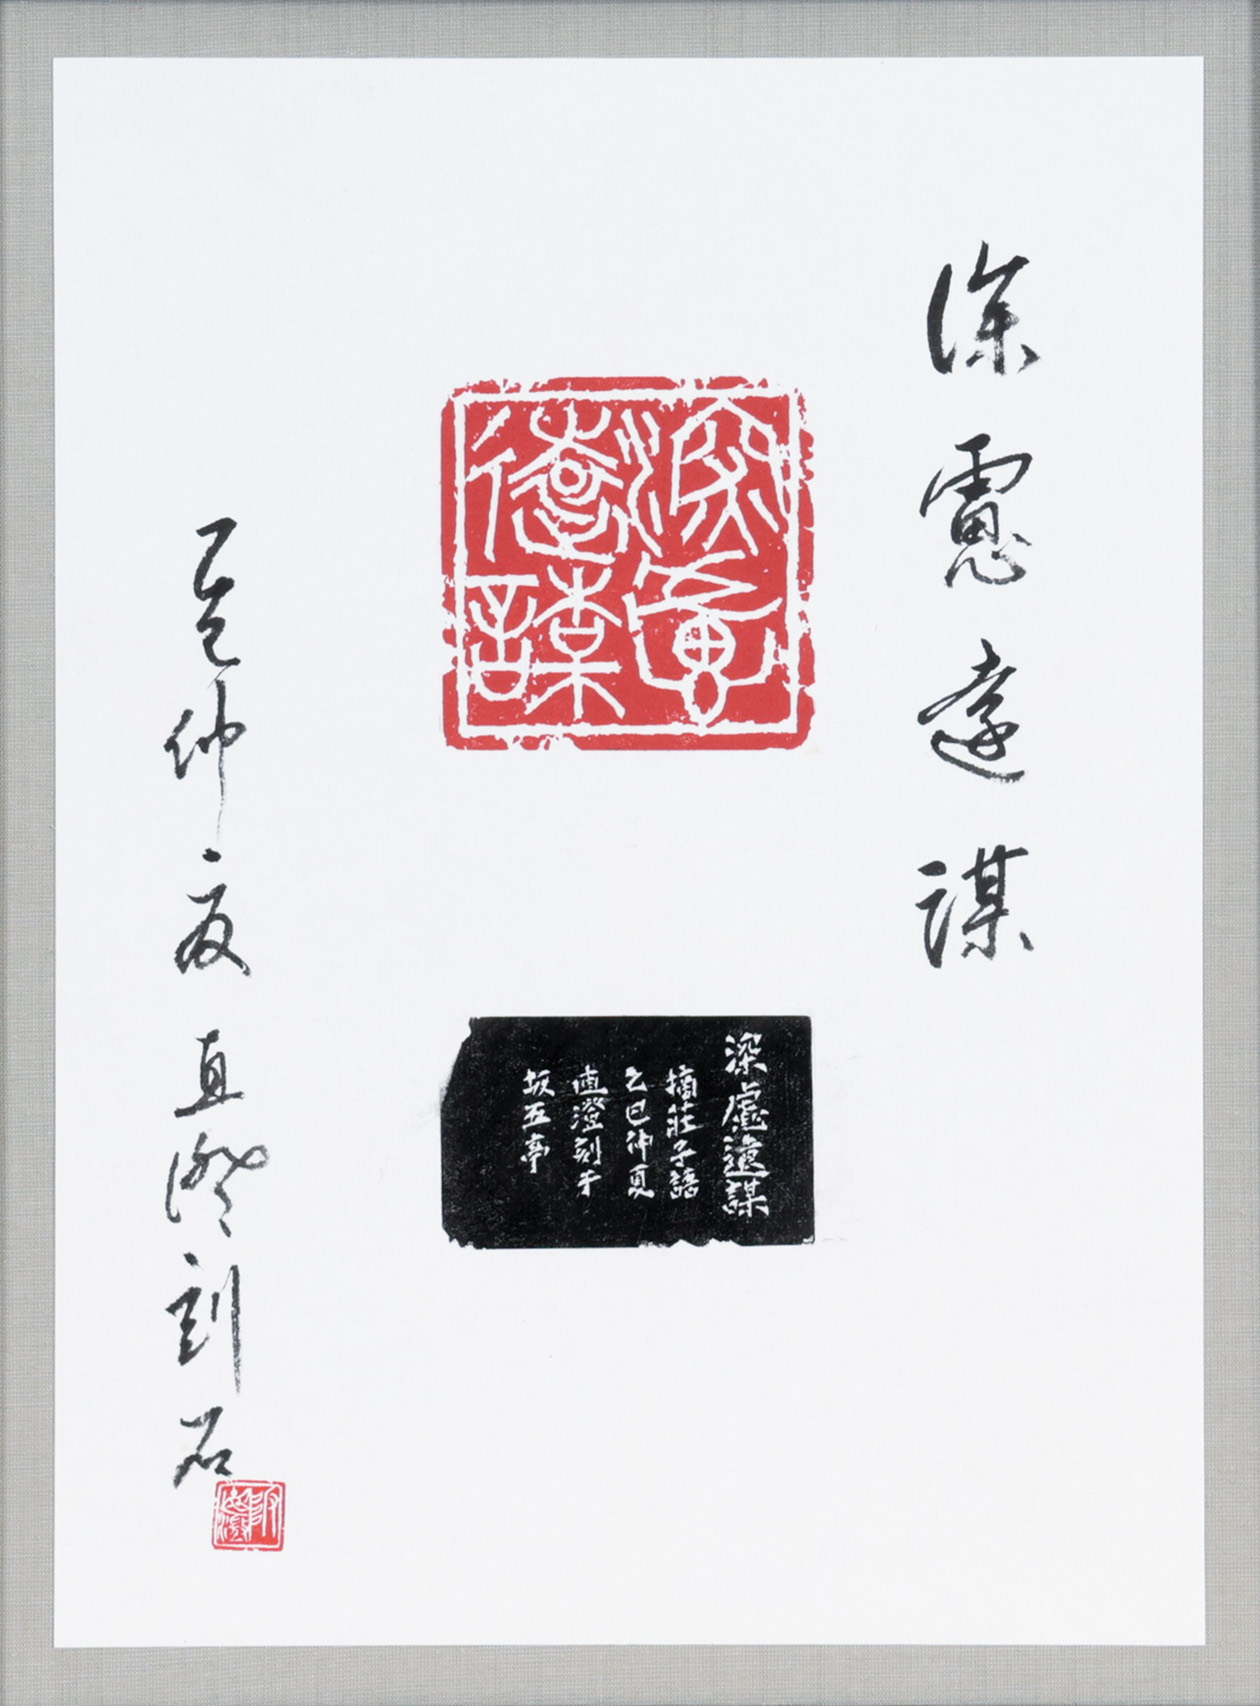 深慮遠謀
深慮遠謀
深慮遠謀
摘莊子語
乙巳仲夏
直澄刻于
坂五亭
乙巳仲夏直澄刻石